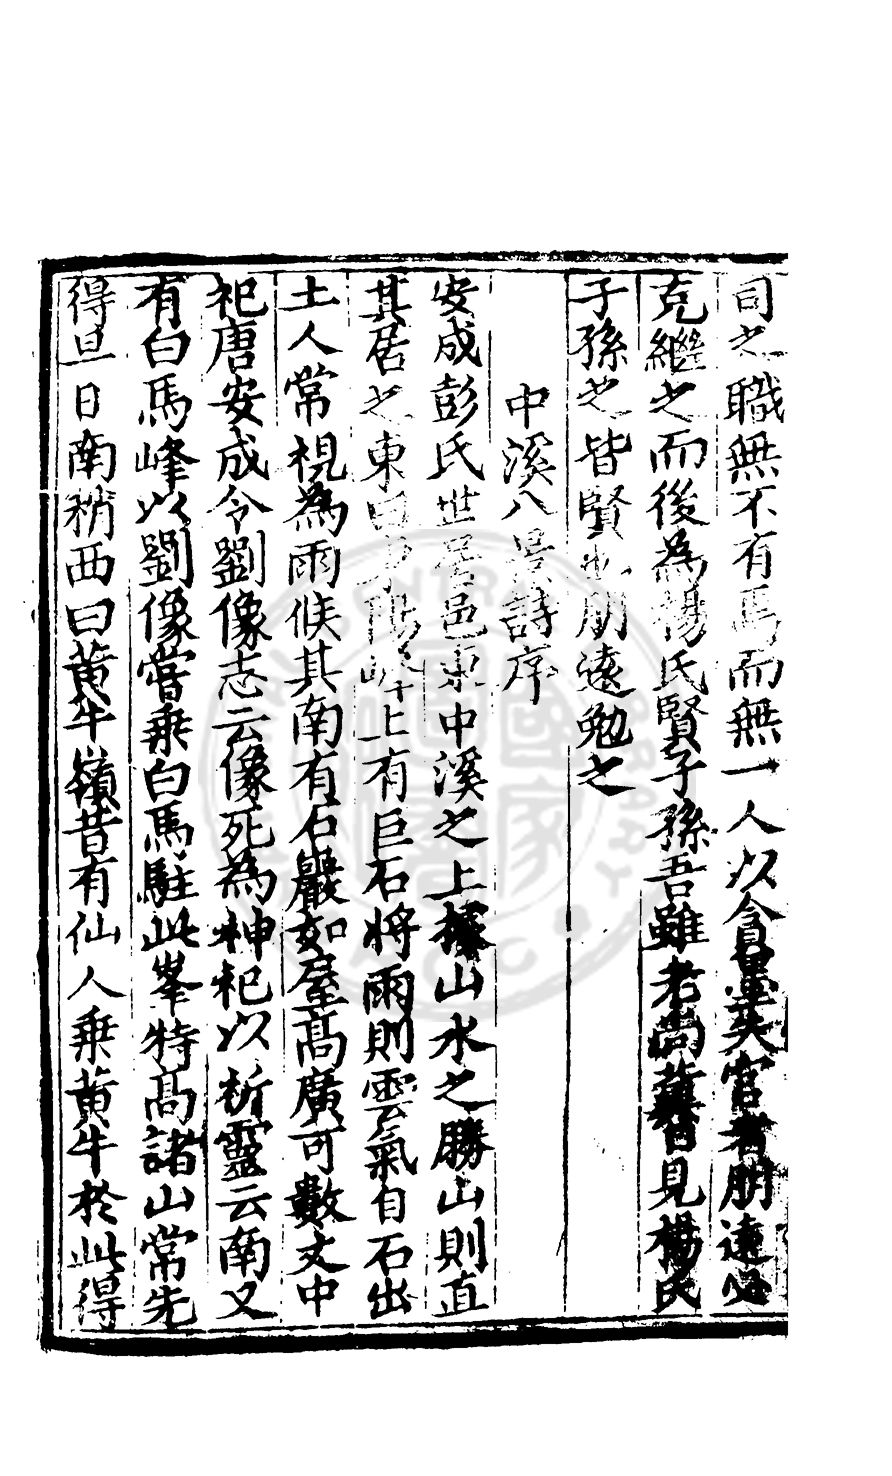 司之職無不有焉而無一人以貪墨失官者朋遠必
克繼之而後為楊氏賢子孫吾雖老尚冀皆見楊氏
子孫之皆賢也朋遠勉之
中溪八景詩序
安成彭氏世居邑東中溪之上據山水之勝山則直
其居之東曰陽峰上有巨石將雨則雲氣自石出
土人常視為雨候其南有石巖如屋高廣可數丈中
祀唐安成令劉像志云像死為神祀以祈靈云南又
有白馬峰以劉像嘗乘白馬駐此峯特高諸山常先
得旦日南稍西曰黃牛嶺昔有仙人乘黃牛於此得